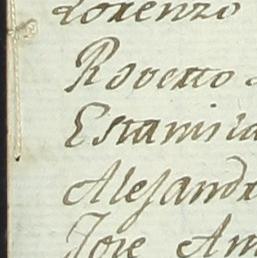 Lorenzo
Roverto
Estanisla
Alejandr
Jose An